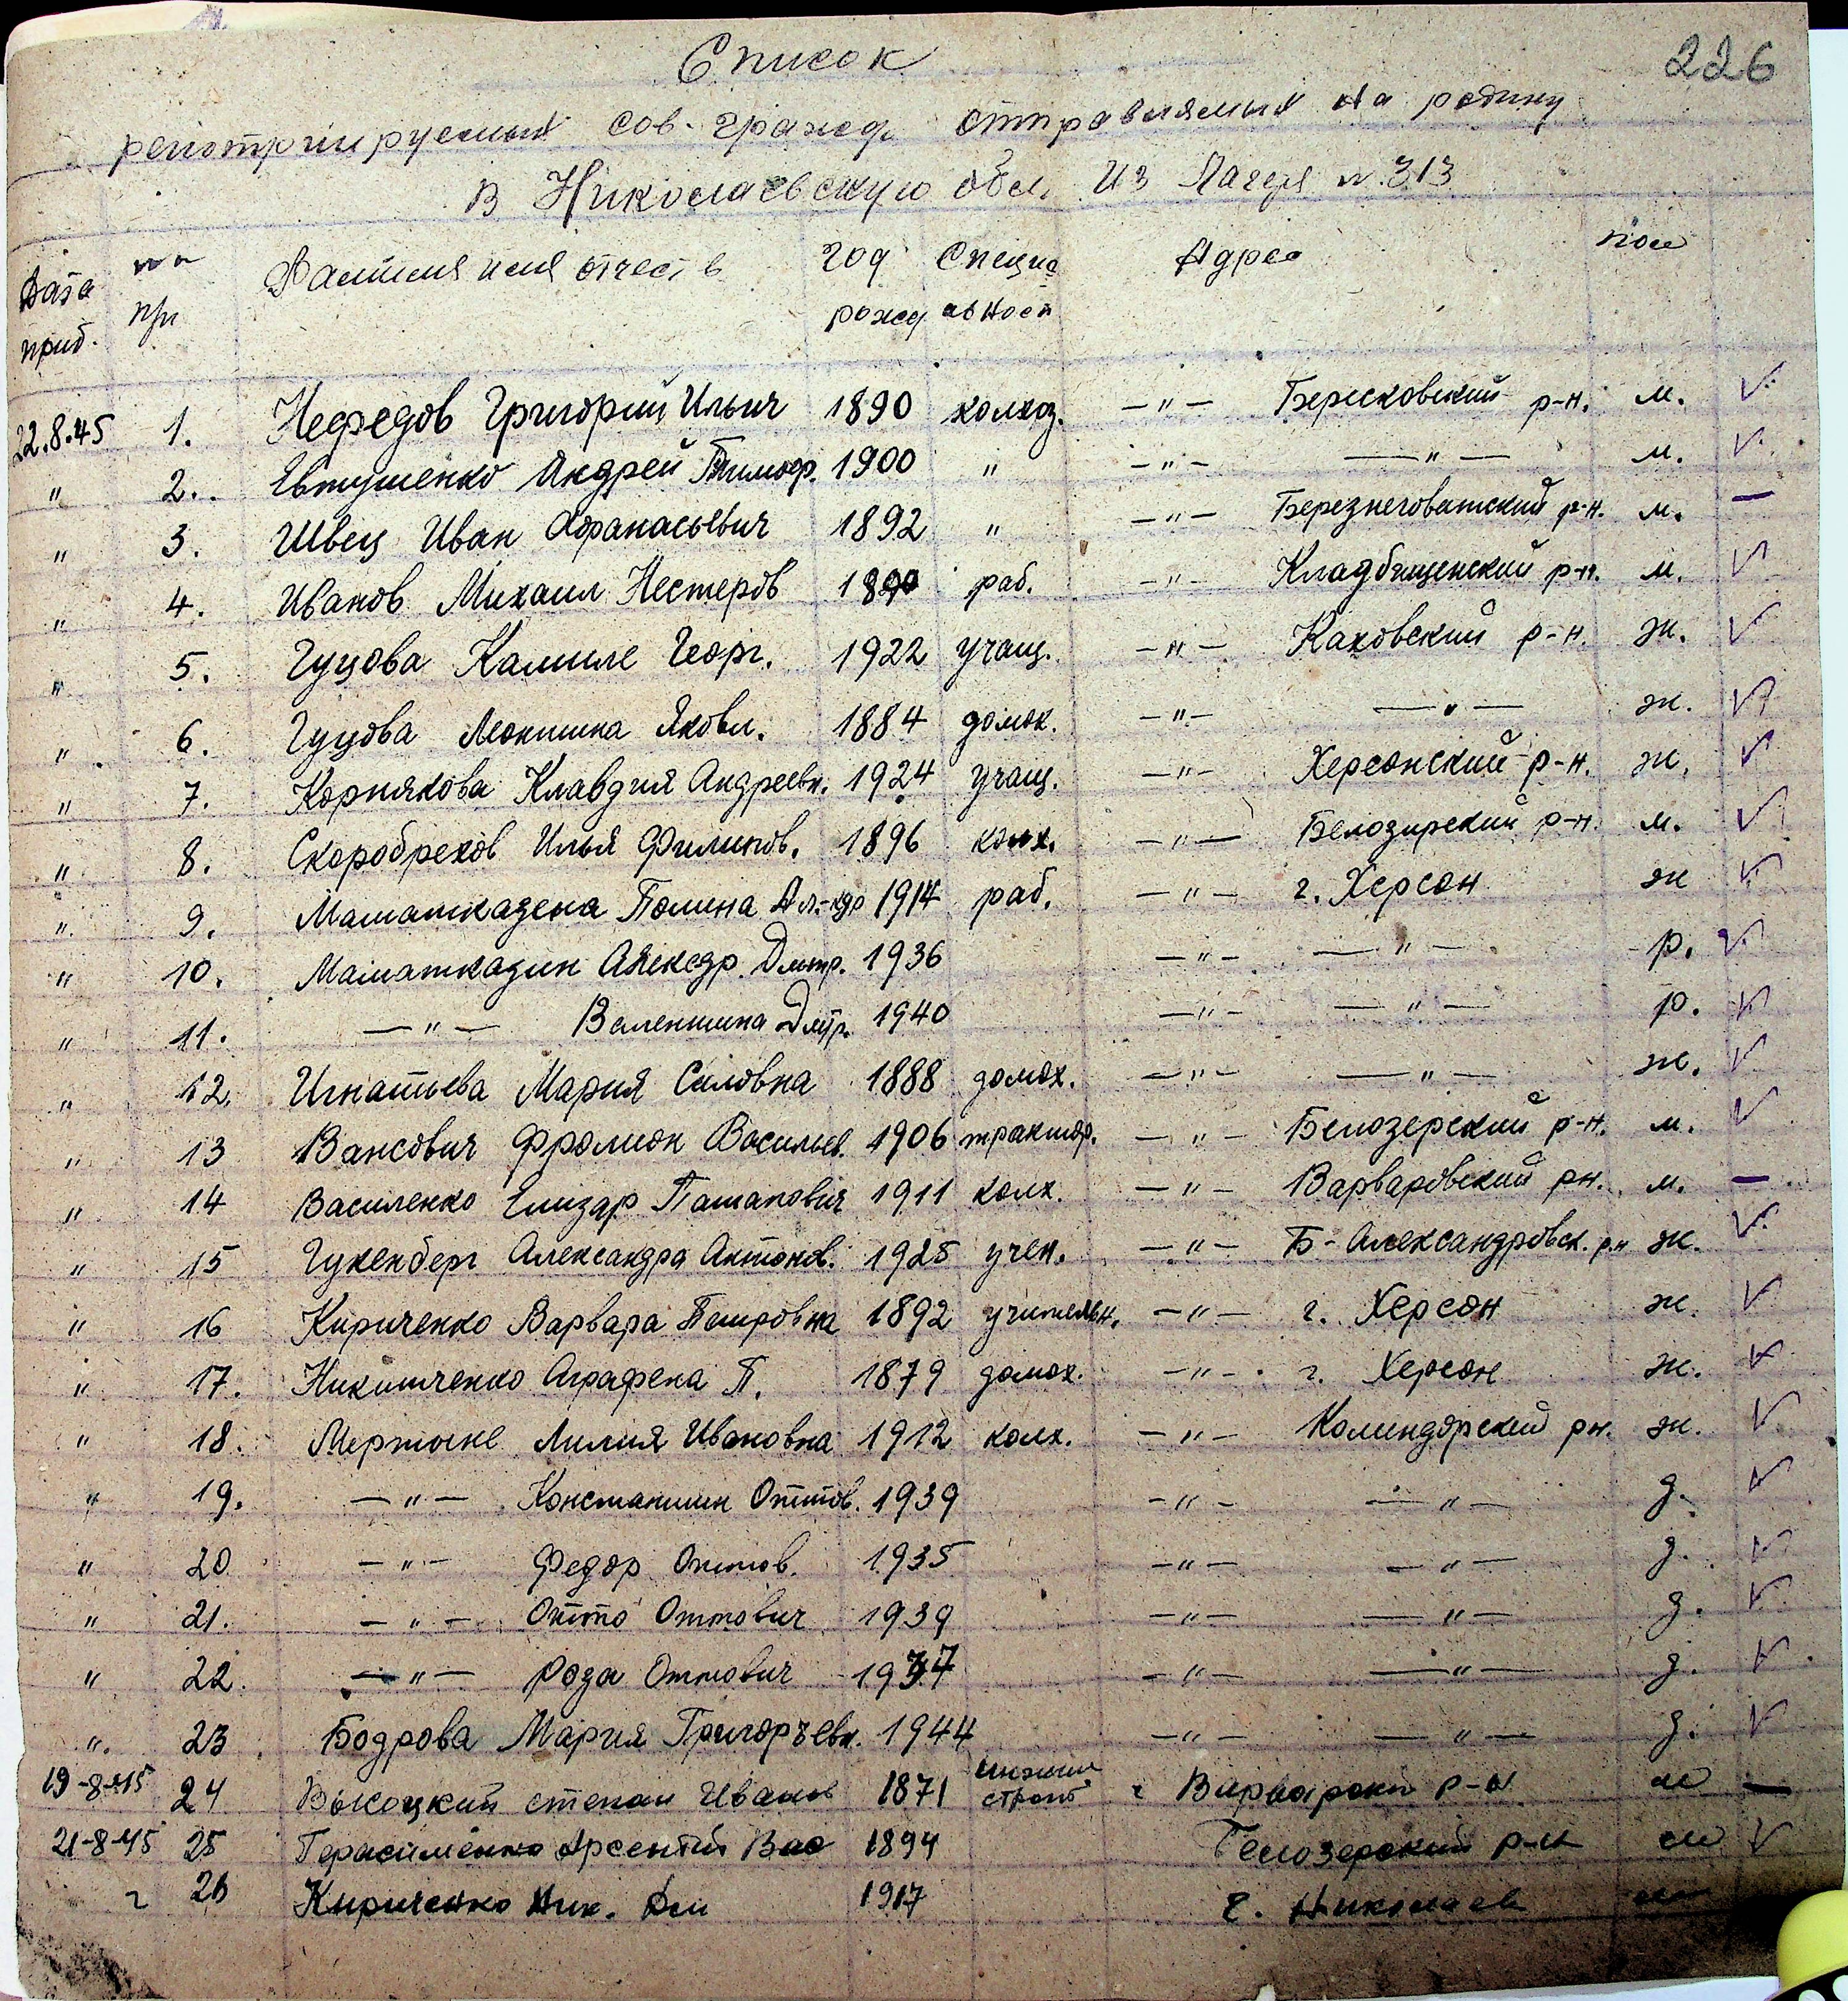 226
Список
репотриируемых сов. гражд. отправляемых на родину
в Николаевскую обл. из Лагеря N. 313
Дата приб. NN п/п Фамилия имя отчеств год рожд Специальност Адрес пол
22.8.45 1. Нефедов Григорий Ильич 1890 колхоз. —"— Берисковский р-н. м. ✓
" 2. Евтушенко Андрей Тимоф. 1900 " —"— —"— м. ✓
" 3. Швец Иван Афанасьевич 1892 " —"— Березнеговатский р-н. м. —
" 4. Иванов Михаил Нестеров 1890 раб. —"— Кладбищенский р-н. м. ✓
" 5. Гуцова Камиле Георг. 1922 учащ. —"— Каховский р-н. ж. ✓
" 6. Гуцова Яковл. 1884 домох. —"— —"— ж. ✓
" 7. Корнякова Клавдия Андреевн. 1924 учащ. —"— Херсонский р-н. ж. ✓
" 8. Скоробрехов Илья Филипов. 1896 колх. —"— Белозирский р-н. м. ✓
" 9. Маматказена Полина Ал-ндр 1914 раб. —"— г. Херсон ж ✓
" 10. Маматказин Алексдр. Дмтр. 1936 —"— —"— р. ✓
" 11. —"— Валентина Дмтр. 1940 —"— —"— р. ✓
" 12. Игнатьева Мария Силовна 1888 домох. —"— —"— ж. ✓
" 13 Вансович Фролион Васильев. 1906 трактор. —"— Белозерский р-н. м. ✓
" 14 Василенко Елизар Паталович 1911 колх. —"— Варваровский рн. м. —
" 15 Гукенберг Александра Антонов. 1925 учен. —"— Б-Александровск. р.н ж. ✓
" 16 Кириченко Варвара Петровна 1892 учительн. —"— г. Херсон ж. ✓
" 17. Никитченко Аграфена П. 1879 домох. —"— г. Херсон ж. ✓
" 18. Мертыне Лилия Ивановна 1912 колх. —"— Калиндорский рн. ж. ✓
" 19. —"— Константин Оттов. 1939 —"— —"— д. ✓
" 20 —"— Федор Оттов. 1935 —"— —"— д. ✓
" 21. —"— Отто Оттович 1939 —"— —"— д. ✓
" 22. —"— Роза Оттович —"— —"— д. ✓
" 23 Бодрова Мария Григорьевн. 1944 —"— —"— д. ✓
19-8-45 24 Высоцкий степан Иванов 1871 р-н м —
21-8-45 25 Герасименко Арсентий Вас 1894 Белозерский р-н м ✓
" 26 Кириченко Ник. 1917 г. Николаев м